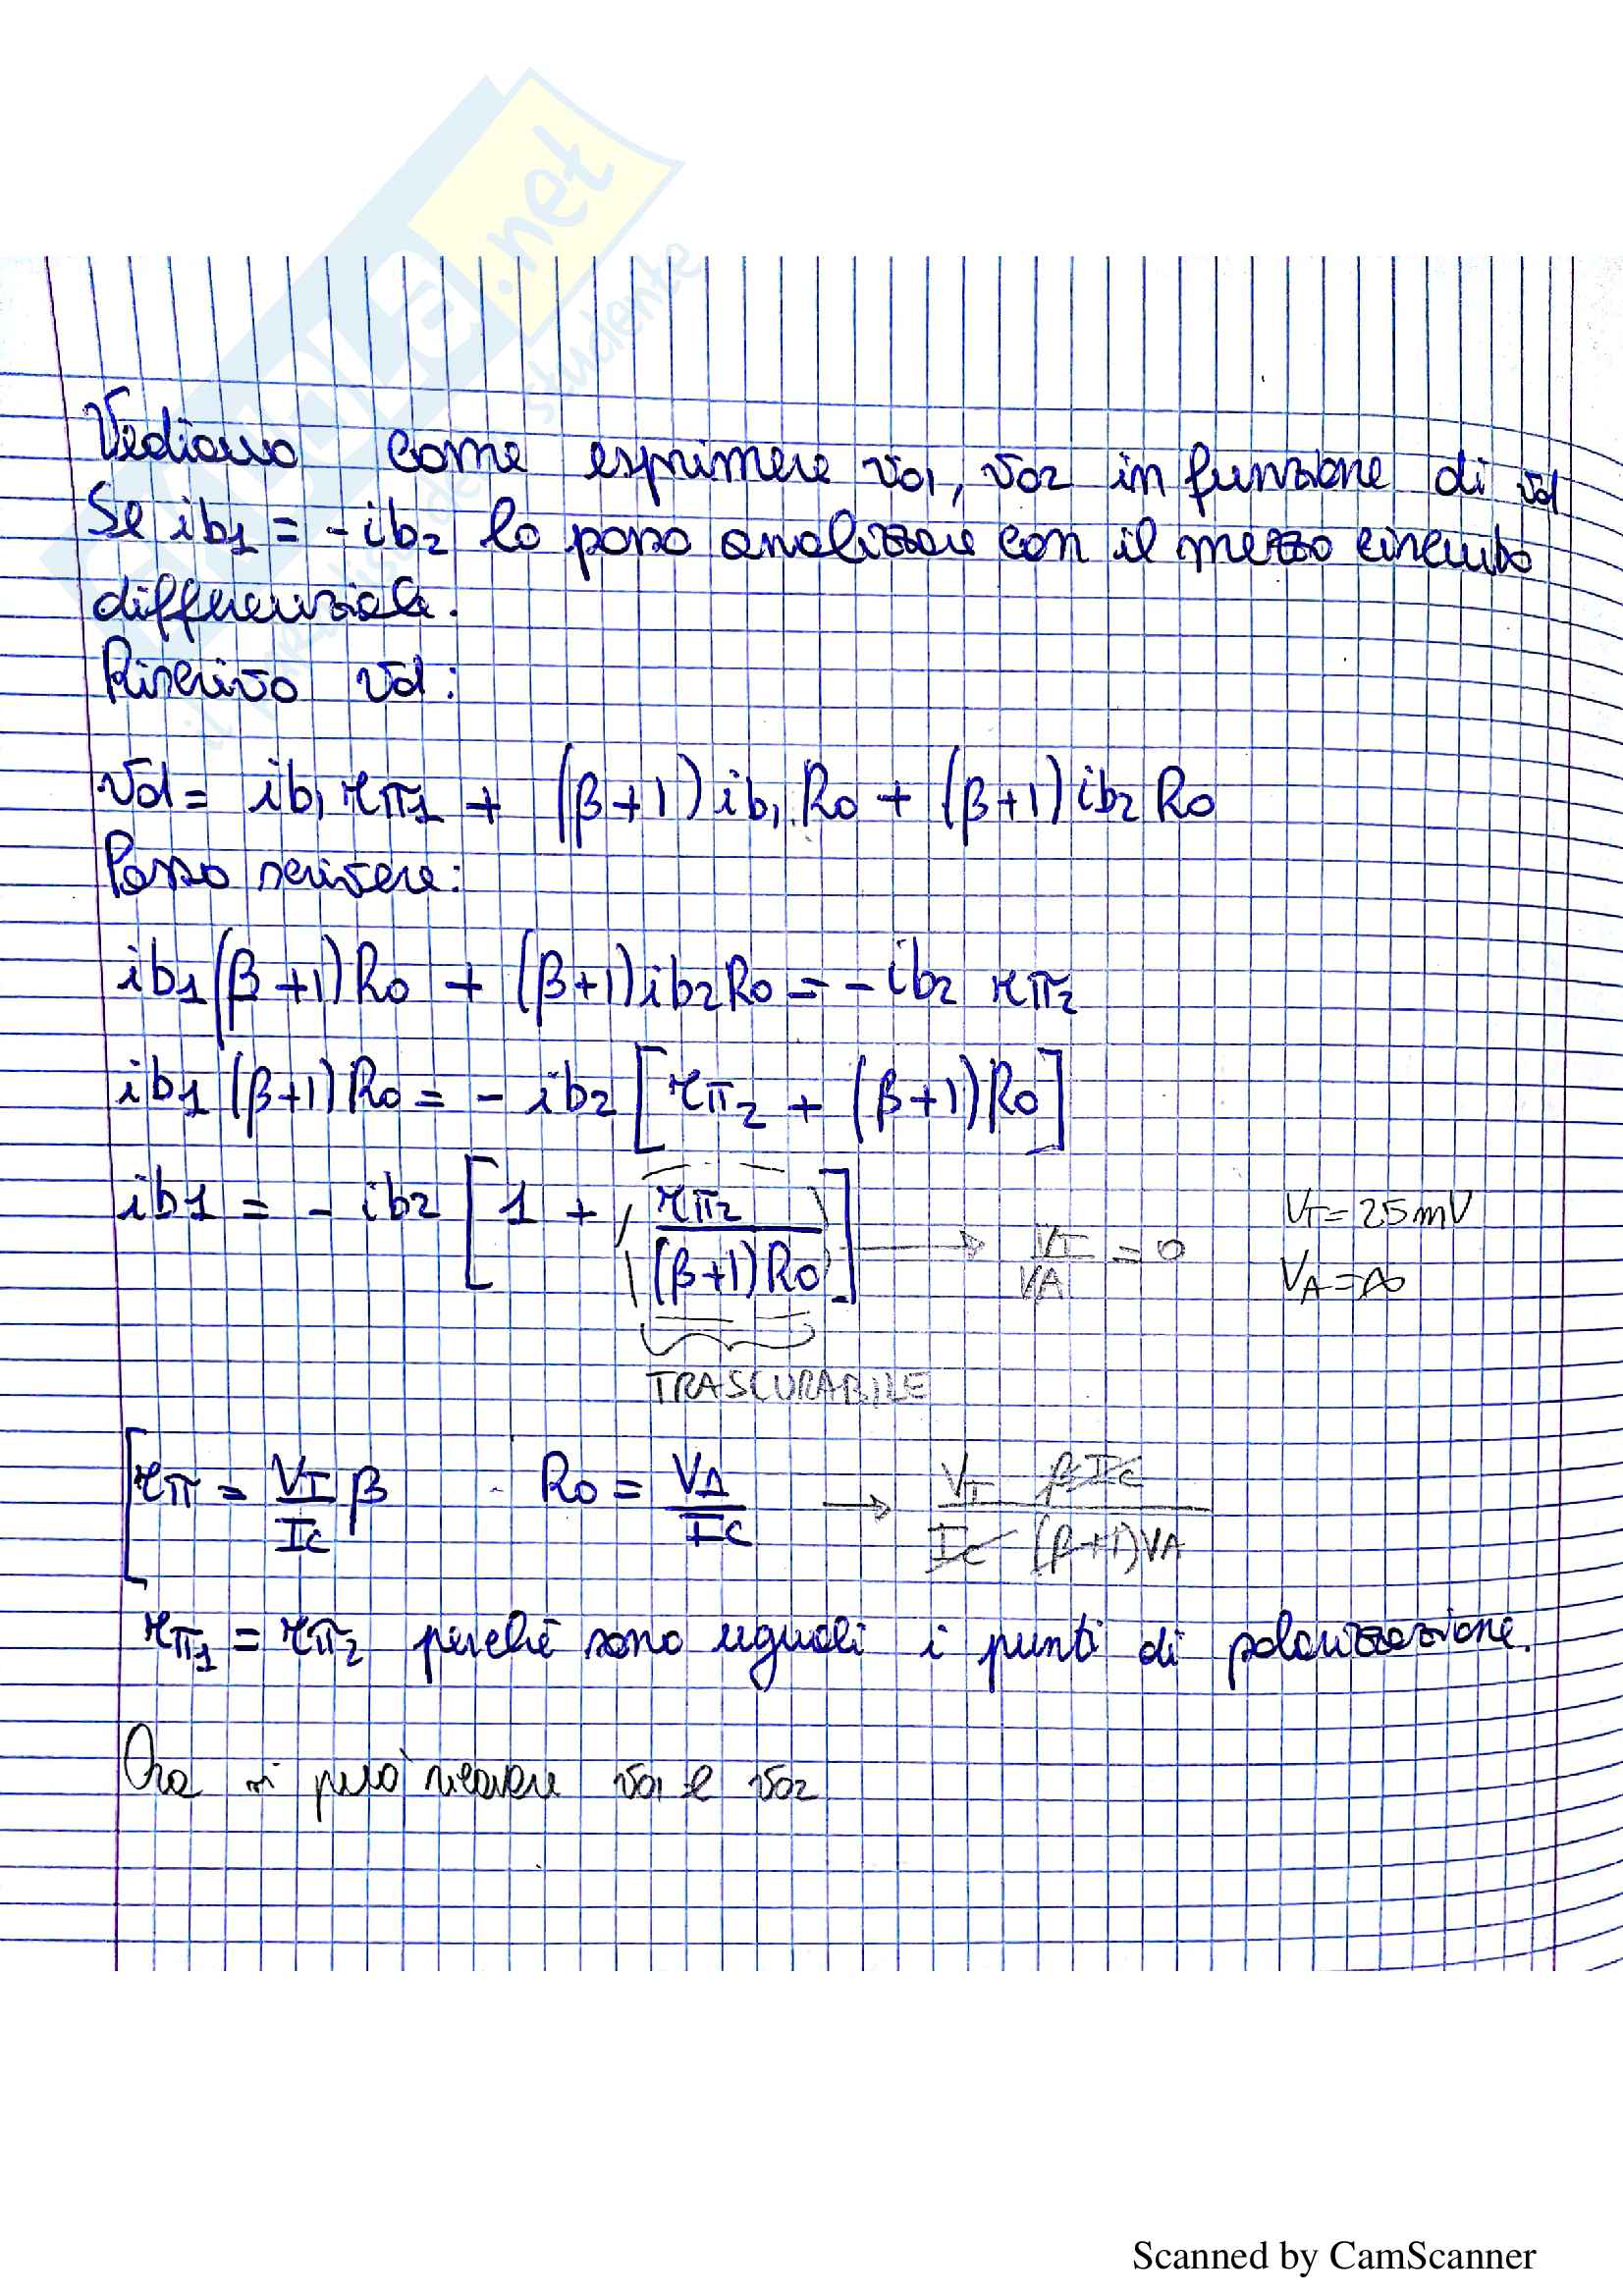 Vediamo come esprimere vo1, vo2 in funzione di vd
Se ib1 = -ib2 lo posso analizzare con il mezzo circuito
differenziale.
Riscrivo vd:
vd = ib1 rπ1 + (β+1) ib1 Ro + (β+1) ib2 Ro
Posso scrivere:
ib1 (β+1) Ro + (β+1) ib2 Ro = - ib2 rπ2
ib1 (β+1) Ro = - ib2 [rπ2 + (β+1) Ro]
ib1 = - ib2 [1 + rπ2 / (β+1) Ro] → VT / VA = 0
VT = 25 mV
VA = ∞
TRASCURABILE
[rπ = VT / IC β Ro = VA / IC → VT β IC / IC (β+1) VA
rπ1 = rπ2 perché sono uguali i punti di polarizzazione.
Ora si può ricavare vo1 e vo2
.net
studente
Scanned by CamScanner